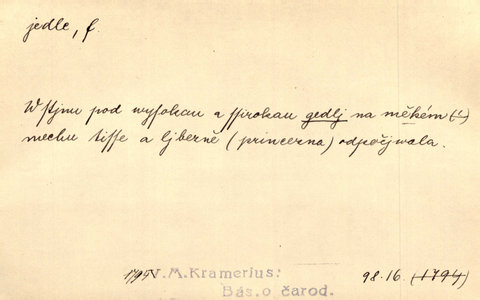 jedle, f.
W stjnu pod wysokau a ssirokau gedlj na měkém (!)
mechu tisse a ljbezně (princezna) odpočjwala.
1794 V. M. Kramerius: 98.16. (1794)
Bás. o čarod.